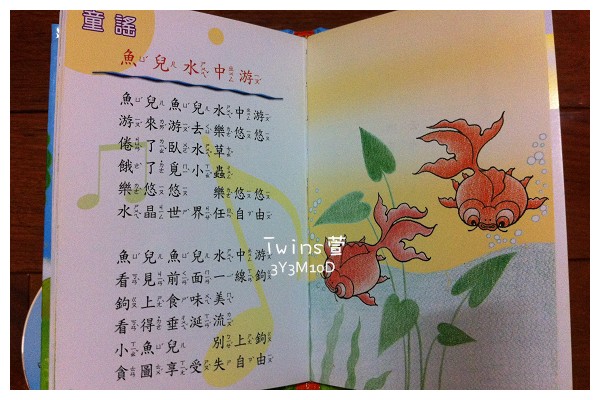 童謠
魚兒水中游
魚兒魚兒水中游
游來游去樂悠悠
倦了臥水草
餓了覓小蟲
樂悠悠 樂悠悠
水晶世界任自由
魚兒魚兒水中游
看見前面一線鉤
鉤上食味美
看得垂涎流
小魚兒 別上鉤
貪圖享受失自由
Twins萱
3Y3M10D